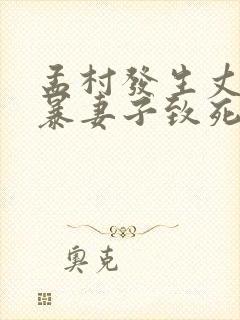 孟村發生丈
暴妻子致死
奧克